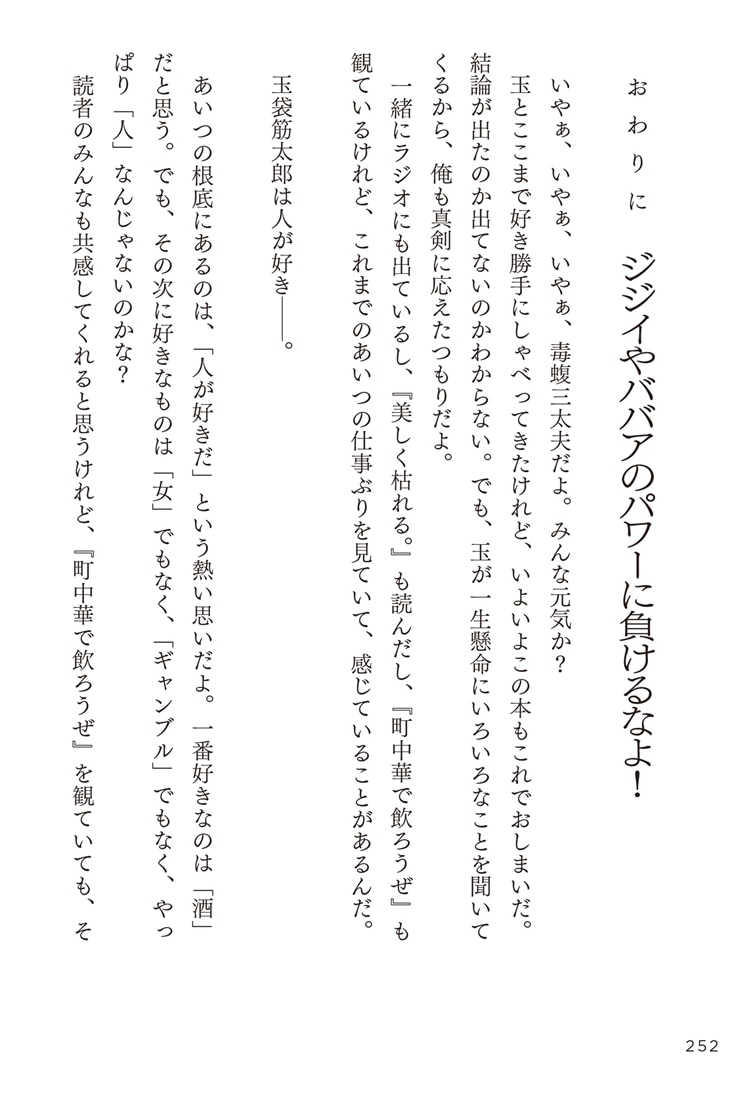 おわりに　ジジイやババアのパワーに負けるなよ！
いやぁ、いやぁ、いやぁ、毒蝮三太夫だよ。みんな元気か？
玉とここまで好き勝手にしゃべってきたけれど、いよいよこの本もこれでおしまいだ。
結論が出たのか出てないのかわからない。でも、玉が一生懸命にいろいろなことを聞いて
くるから、俺も真剣に応えたつもりだよ。
一緒にラジオにも出ているし、『美しく枯れる。』も読んだし、『町中華で飲ろうぜ』も
観ているけれど、これまでのあいつの仕事ぶりを見ていて、感じていることがあるんだ。
玉袋筋太郎は人が好き――。
あいつの根底にあるのは、「人が好きだ」という熱い思いだよ。一番好きなのは「酒」
だと思う。でも、その次に好きなものは「女」でもなく、「ギャンブル」でもなく、やっ
ぱり「人」なんじゃないのかな？
読者のみんなも共感してくれると思うけれど、『町中華で飲ろうぜ』を観ていても、そ
252